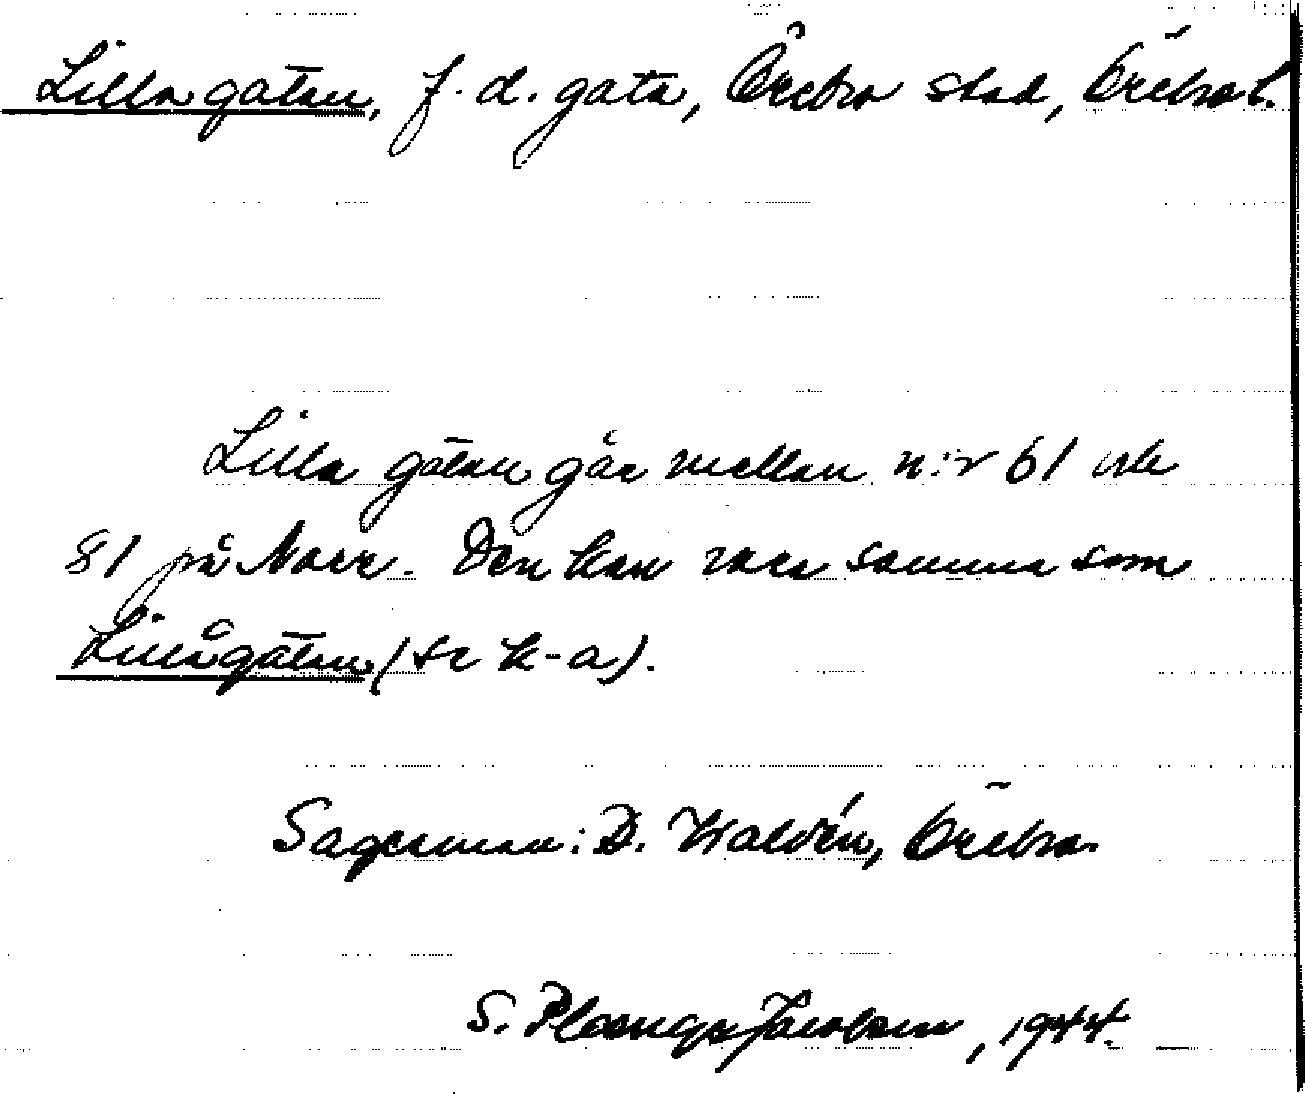 Lilla gatan, f.d. gata, Örebro stad, Örebro l.
Lilla gatan går mellan n:r 61 och
81 på Norr. Den kan vara samma som
Lillågatan (se k-a).
Sagesman: B. Waldén, Örebro.
S. Plaenge Jacobson, 1944.